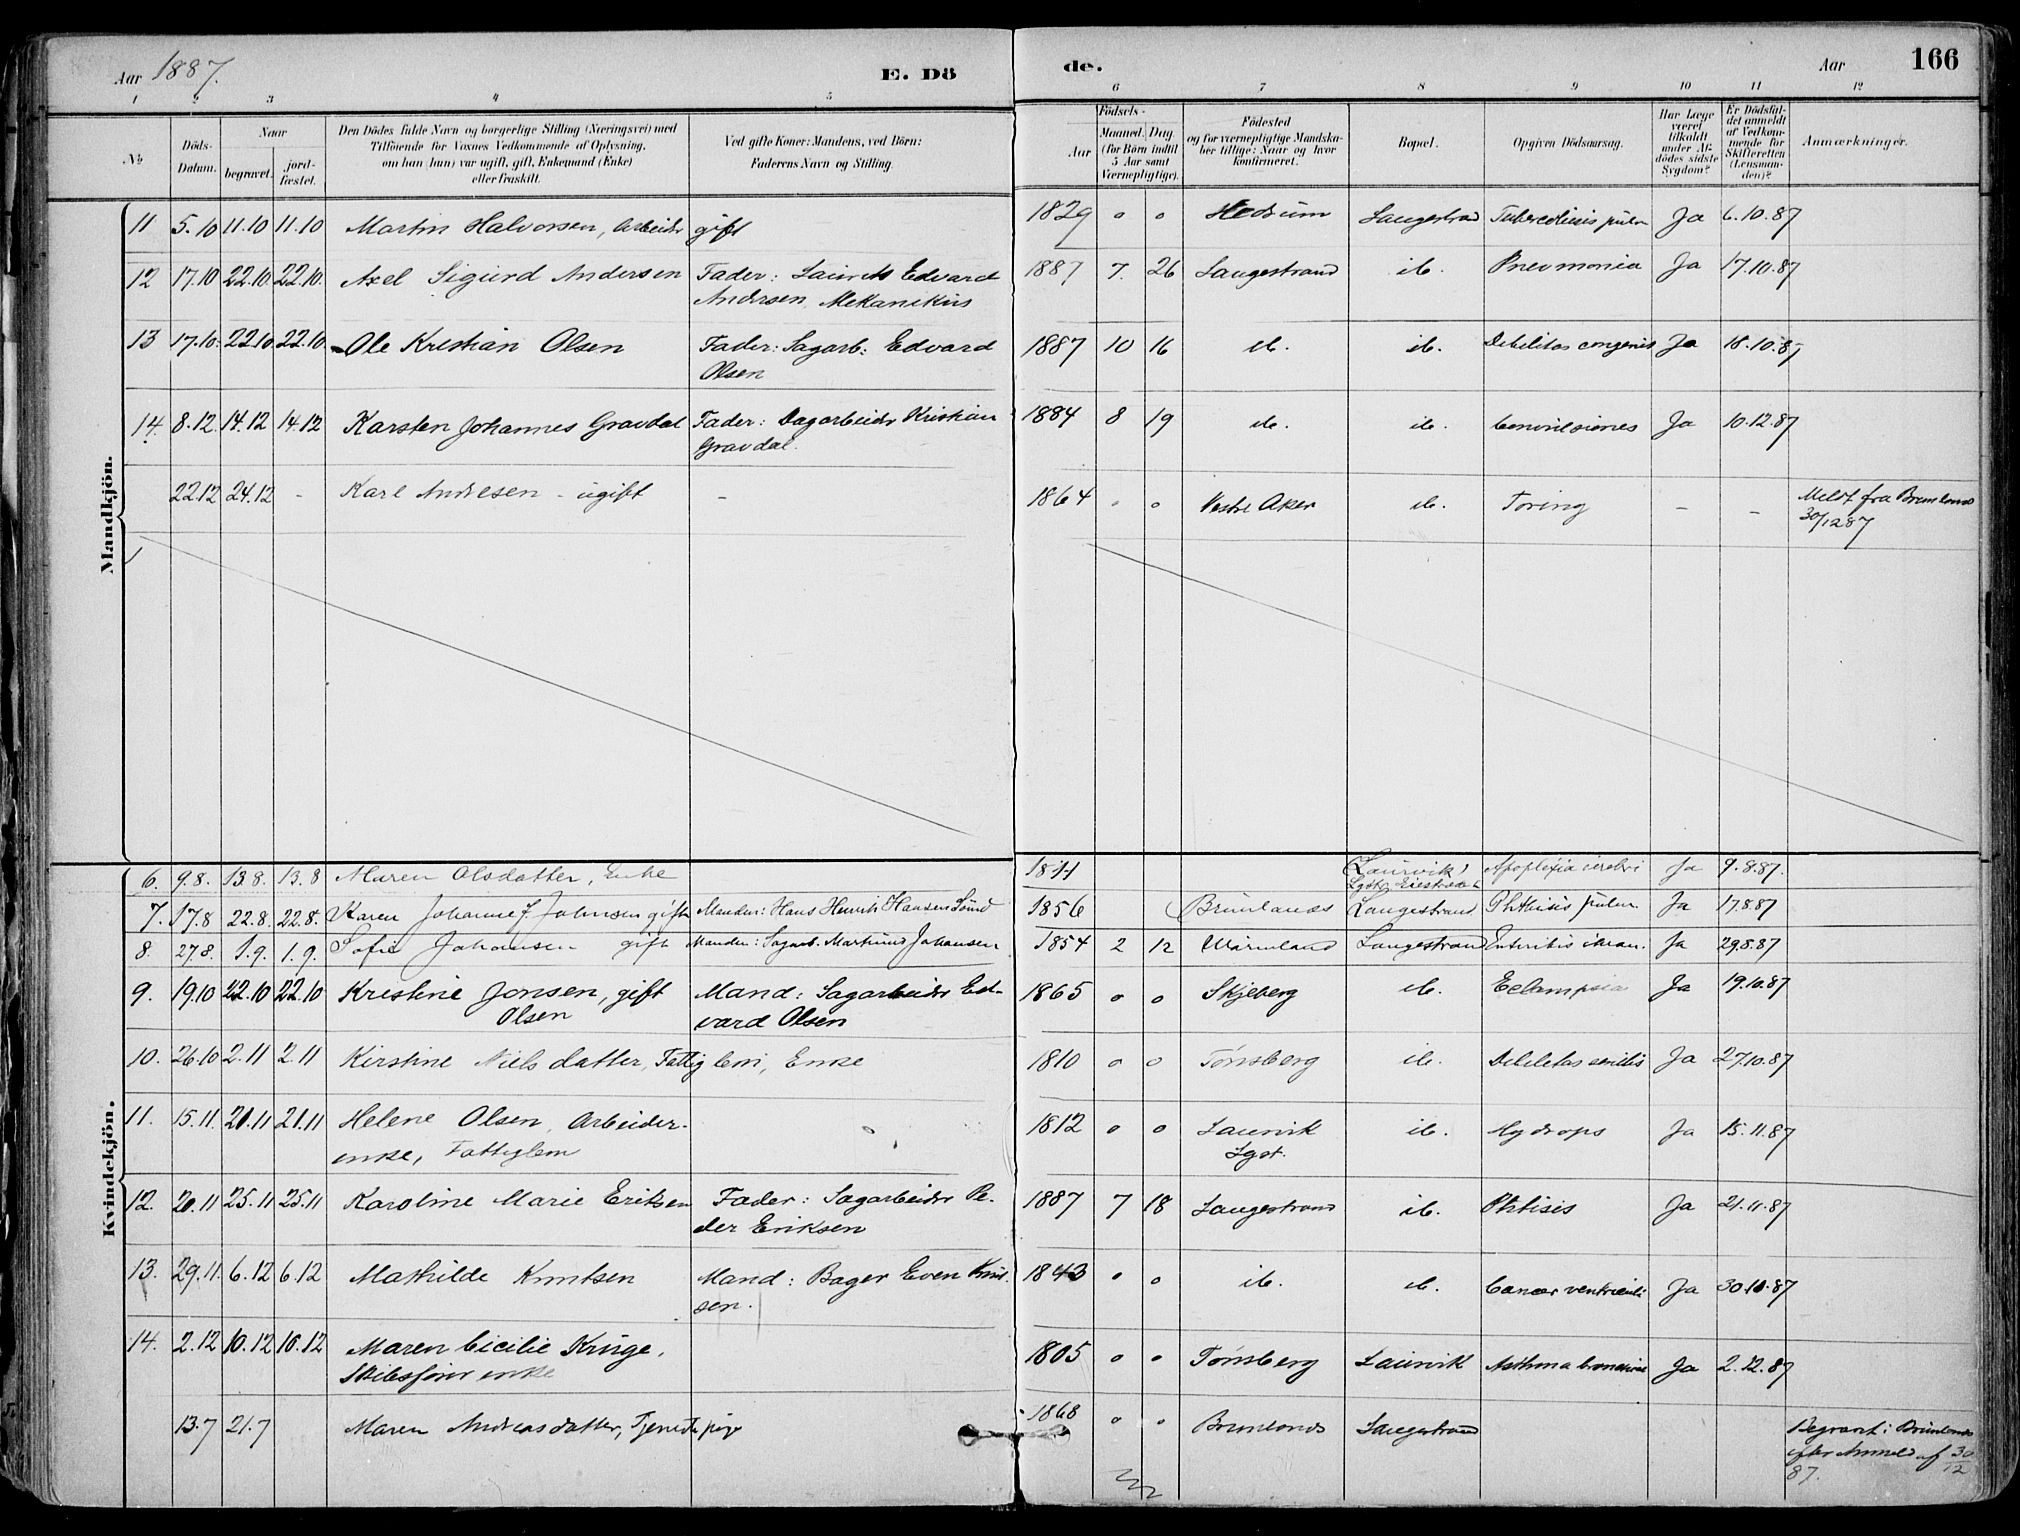 Aar 1887. E. Dö de. Aar 166
1 2 3 4 5 6 7 8 9 10 11 12
No Döds-Datum. Naar begravet. jord-fæstet. Den Dödes fulde Navn og borgerlige Stilling (Næringsvei) med Tilföiende for Voxnes Vedkommende af Oplysning, om han (hun) var ugift, gift, Enkemand (Enke) eller fraskilt. Ved gifte Koner: Mandens, ved Börn: Faderens Navn og Stilling. Födsels- Aar Maaned. Dag (for Börn indtil 5 Aar samt Værnepligtige). Födested og for værnepligtige Mandskaber tillige: Naar og hvor konfirmeret. Bopæl. Opgiven Dödsaarsag. Har Læge været tilkaldt under Afdödes sidste Sygdom? Er Dödsfaldet anmeldt af Vedkommende for Skifteretten (Lensmanden)? Anmærkninger.
Mandkjön.
11 5.10 11.10 11.10 Martin Halvorsen, Arbeider gift 1829 o o Hedrum Langestrand Tuberculosis pulm Ja 6.10.87
12 17.10 22.10 22.10. Axel Sigurd Andersen Fader: Laurits Edvard 1887 7. 26 Langestrand ib. Pneumonia Ja 17.10.87
Andersen Mekanikus
13 17.10. 22.10 22.10. Ole Kristian Olsen Fader: Sagarb: Edvard 1887 10 16 ib. ib. Debilitas congenit Ja 18.10.87
Olsen
14. 8.12. 14.12 14.12 Karsten Johannes Gravdal Fader: Dagarbeider Kristian 1884 8 19 ib. ib. Convulsiones Ja 10.12.87
Gravdal.
22.12 24.12 - Karl Andresen - ugift - 1864 o o Vestre Aker ib. Toring - - Meldt fra Brunlanes
30/12 87
Kvindekjön.
6. 9.8. 13.8. 13.8 Maren Olsdatter, Enke 1811 Laurvik, Apoplexia cerebri Ja 9.8.87.
7. 17.8 22.8. 22.8. Karen Johanne J. Johnsen gift Manden: Hans Henrik Hansen Lund 1856 Brunlanes Langestrand Phthisis pulm Ja 17.8.87
8. 27.8. 1.9. 1.9. Sofie Johansen gift Manden: Sagarb. Martinus Johansen 1854 2 12 Wärmland Langestrand Enteritis Ja 29.8.87
9. 19.10 22.10 22.10 Kristine Jonsen, gift Mand: Sagarbeider Ed- 1865 o o Skjeberg ib. Eclampsia Ja 19.10.87
Olsen vard Olsen
10. 26.10 2.11 2.11 Kirstine Nielsdatter, Fattiglem, Enke 1810 o o Tønsberg ib. Debilitas senilis Ja 27.10.87
11. 15.11. 21.11 21.11 Helene Olsen, Arbeider- 1812 o o Laurvik ib. Hydrops Ja 15.11.87
enke, Fattiglem Lgst.
12. 20.11 25.11 25.11 Karoline Marie Eriksen Fader: Sagarbeider Pe- 1887 7 18 Langestrand ib. Phtisis Ja 21.11.87
der Eriksen
13. 29.11. 6.12 6.12 Mathilde Knutsen Mand: Bager Even Knut- 1843 o o ib. ib. Cancer ventriculi Ja 30.11.87
sen.
14. 2.12 10.12 10.12 Maren Cicilie Kruge, 1805 o o Tønsberg Laurvik Asthma bronchiale Ja 2.12.87
Skibsførerenke
13.7 21.7 Maren Andreasdatter, Tjenestepige 1868 o o Brunlanes Langestrand Begravet i Brunlanes
efter Anmeld af 30/12
87.